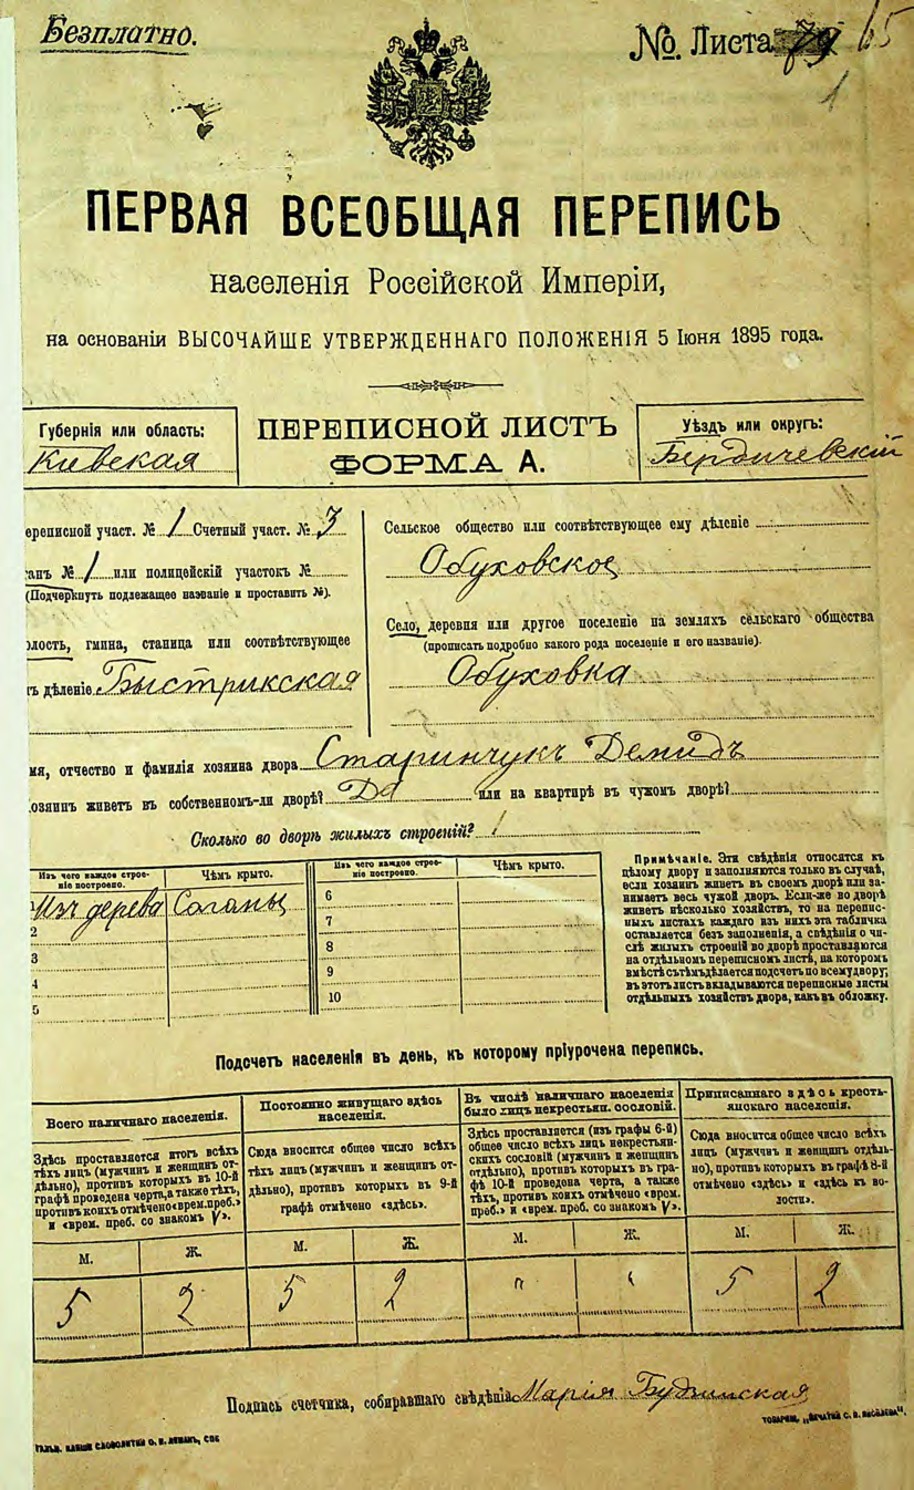 Безплатно.
№ Листа 79 65
1
ПЕРВАЯ ВСЕОБЩАЯ ПЕРЕПИСЬ
населенія Россійской Имперіи,
на основаніи ВЫСОЧАЙШЕ УТВЕРЖДЕННАГО ПОЛОЖЕНІЯ 5 Іюня 1895 года.
Губернія или область:
Киевская
ПЕРЕПИСНОЙ ЛИСТЪ
ФОРМА А.
Уѣздъ или округъ:
Бердичевскій
ереписной участ. № 1 Счетный участ. № 3
танъ № 1 или полицейскій участокъ №
(Подчеркнуть подлежащее названіе и проставить №).
олость, гмина, станица или соотвѣтствующее
ъ дѣленіе Быстрикская
Сельское общество или соотвѣтствующее ему дѣленіе
Обуховское
Село, деревня или другое поселеніе на земляхъ сельскаго общества
(прописать подробно какого рода поселеніе и его названіе).
Обуховка
мя, отчество и фамилія хозяина двора Старинчукъ Демидъ
озяинъ живетъ въ собственномъ-ли дворѣ? Да или на квартирѣ въ чужомъ дворѣ?
Сколько во дворѣ жилыхъ строеній? 1
Изъ чего каждое строеніе построено.
Чѣмъ крыто.
Изъ чего каждое строеніе построено.
Чѣмъ крыто.
Изъ дерева Соломы
2
3
4
5
6
7
8
9
10
Примѣчаніе. Эти свѣдѣнія относятся къ
цѣлому двору и заполняются только въ случаѣ,
если хозяинъ живетъ въ своемъ дворѣ или за-
нимаетъ весь чужой дворъ. Если-же во дворѣ
живетъ нѣсколько хозяйствъ, то на перепис-
ныхъ листахъ каждаго изъ нихъ эта табличка
оставляется безъ заполненія, а свѣдѣнія о чи-
слѣ жилыхъ строеній во дворѣ проставляются
на отдѣльномъ переписномъ листѣ, на которомъ
вмѣстѣ съ тѣмъ дѣлается подсчетъ по всему двору;
въ этотъ листъ вкладываются переписные листы
отдѣльныхъ хозяйствъ двора, какъ въ обложку.
Подсчетъ населенія въ день, къ которому пріурочена перепись.
Всего наличнаго населенія.
Здѣсь проставляется итогъ всѣхъ
тѣхъ лицъ (мужчинъ и женщинъ от-
дѣльно), противъ которыхъ въ 10-й
графѣ проведена черта, а также тѣхъ,
противъ коихъ отмѣчено «врем. преб.»
и «врем. преб. со знакомъ V».
М. Ж.
5 2
Постоянно живущаго здѣсь
населенія.
Сюда вносится общее число всѣхъ
тѣхъ лицъ (мужчинъ и женщинъ от-
дѣльно), противъ которыхъ въ 9-й
графѣ отмѣчено «здѣсь».
М. Ж.
5 2
Въ числѣ наличнаго населенія
было лицъ некрестьян. сословій.
Здѣсь проставляется (изъ графы 6-й)
общее число всѣхъ лицъ некрестьян-
скихъ сословій (мужчинъ и женщинъ
отдѣльно), противъ которыхъ въ гра-
фѣ 10-й проведена черта, а также
тѣхъ, противъ коихъ отмѣчено «врем.
преб.» и «врем. преб. со знакомъ V».
М. Ж.
" "
Приписаннаго здѣсь кресть-
янскаго населенія.
Сюда вносится общее число всѣхъ
лицъ (мужчинъ и женщинъ отдѣль-
но), противъ которыхъ въ графѣ 8-й
отмѣчено «здѣсь» и «здѣсь къ во-
лости».
М. Ж.
5 2
Подпись счетчика, собиравшаго свѣдѣнія Марія Будзинская